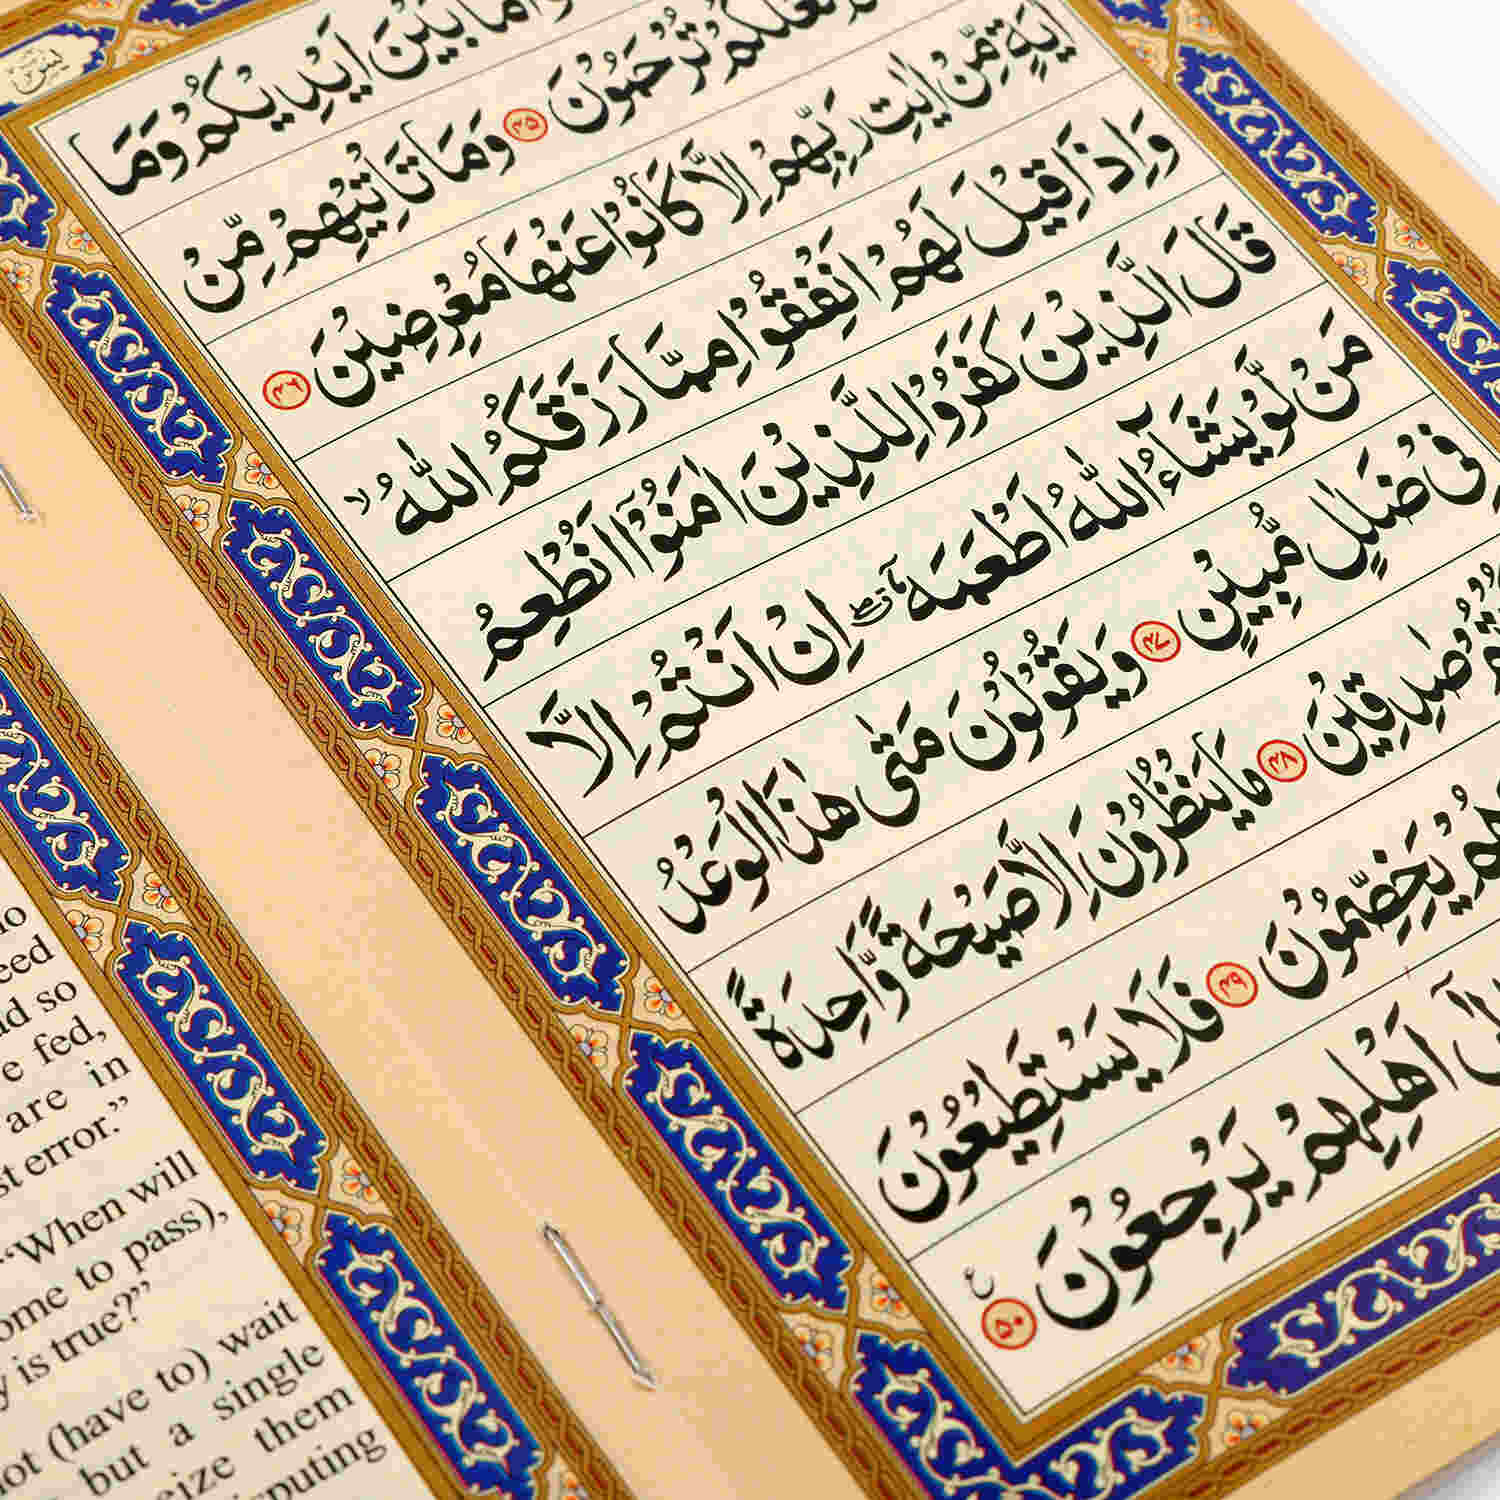 يٰسٓ
وَمَا بَيْنَ اَيْدِيْكُمْ وَمَا
لَعَلَّكُمْ تُرْحَمُوْنَ ۴۵ وَمَا تَاْتِيْهِمْ مِّنْ
اٰيَةٍ مِّنْ اٰيٰتِ رَبِّهِمْ اِلَّا كَانُوْا عَنْهَا مُعْرِضِيْنَ ۴۶
وَاِذَا قِيْلَ لَهُمْ اَنْفِقُوْا مِمَّا رَزَقَكُمُ اللّٰهُ ۙ
قَالَ الَّذِيْنَ كَفَرُوْا لِلَّذِيْنَ اٰمَنُوْٓا اَنُطْعِمُ
مَنْ لَّوْ يَشَآءُ اللّٰهُ اَطْعَمَهٗٓ ۖ اِنْ اَنْتُمْ اِلَّا
فِىْ ضَلٰلٍ مُّبِيْنٍ ۴۷ وَيَقُوْلُوْنَ مَتٰى هٰذَا الْوَعْدُ
صٰدِقِيْنَ ۴۸ مَا يَنْظُرُوْنَ اِلَّا صَيْحَةً وَّاحِدَةً
هُمْ يَخِصِّمُوْنَ ۴۹ فَلَا يَسْتَطِيْعُوْنَ
اَهْلِهِمْ يَرْجِعُوْنَ ۵۰ ع
eed
nd so
e fed,
are in
st error.”
“When will
ome to pass),
y is true?”
not (have to) wait
but a single
eize them
sputing